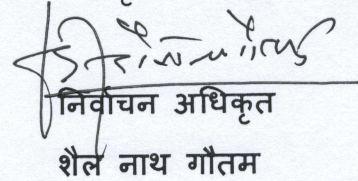 निर्वाचन अधिकृत
शैल नाथ गौतम